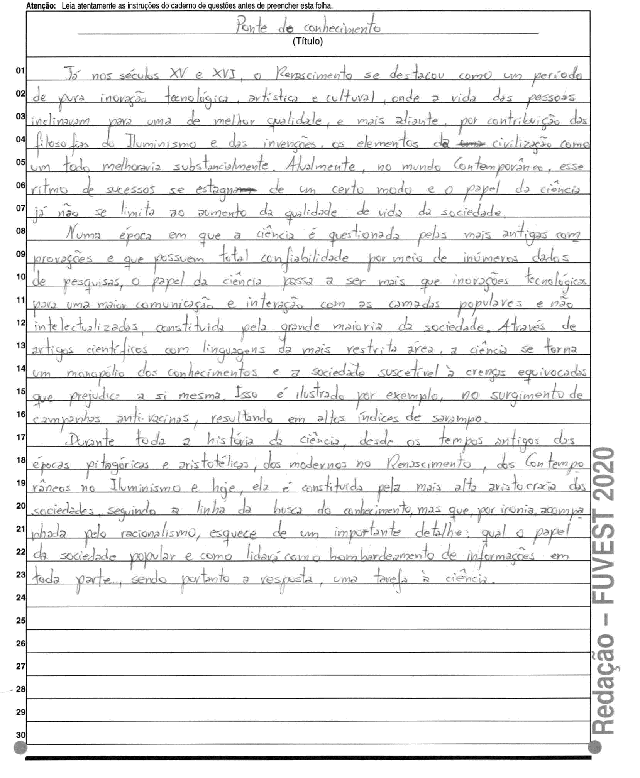 Atenção: Leia atentamente as instruções do caderno de questões antes de preencher esta folha.
Ponte do conhecimento
(Título)
01 Já nos séculos XV e XVI, o Renascimento se destacou como um período
02 de pura inovação tecnológica, artística e cultural, onde a vida das pessoas
03 inclinavam para uma de melhor qualidade, e mais adiante, por contribuição das
04 filosofias do Iluminismo e das invenções, os elementos da civilização como
05 um todo melhoraria substancialmente. Atualmente, no mundo Contemporâneo, esse
06 ritmo de sucessos se estagna de um certo modo e o papel da ciência
07 já não se limita ao aumento da qualidade de vida da sociedade.
08 Numa época em que a ciência é questionada pelas mais antigas com
09 provações e que possuem total confiabilidade por meio de inúmeros dados
10 de pesquisas, o papel da ciência passa a ser mais que inovações tecnológicas
11 para uma maior comunicação e interação com as camadas populares e não
12 intelectualizadas, constituída pela grande maioria da sociedade. Através de
13 artigos científicos com linguagens da mais restrita área, a ciência se torna
14 um monopólio dos conhecimentos e a sociedade suscetível à crenças equivocadas
15 que prejudica a si mesma. Isso é ilustrado por exemplo, no surgimento de
16 campanhas anti-vacinas, resultando em altos índices de sarampo.
17 Durante toda a história da ciência, desde os tempos antigos das
18 épocas pitagóricas e aristotélicas, dos modernos no Renascimento, dos Contempo
19 râneos no Iluminismo e hoje, ela é constituída pela mais alta aristocracia das
20 sociedades, seguindo a linha da busca do conhecimento, mas que, por ironia, acompa
21 nhada pelo racionalismo, esquece de um importante detalhe: qual o papel
22 da sociedade popular e como lidará com o bombardeamento de informações em
23 toda parte, sendo portanto a resposta, uma tarefa à ciência.
24
25
26
27
28
29
30
Redação – FUVEST 2020